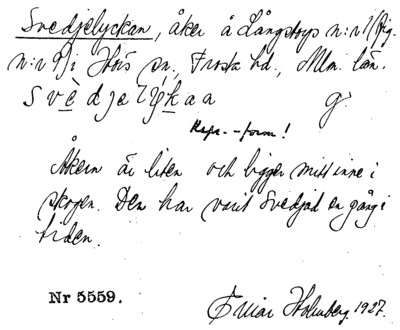 Svedjelyckan, åker å Långstorps n:r 1 (äg.
n:r 9) i Hörs sn., Frosta hd., Mlm. län.
svèdjelýkaa g.
Rspr.-form!
Åkern är liten och ligger mitt inne i
skogen. Den har varit svedjad en gång i
tiden.
Nr 5559.
Einar Holmberg 1927.